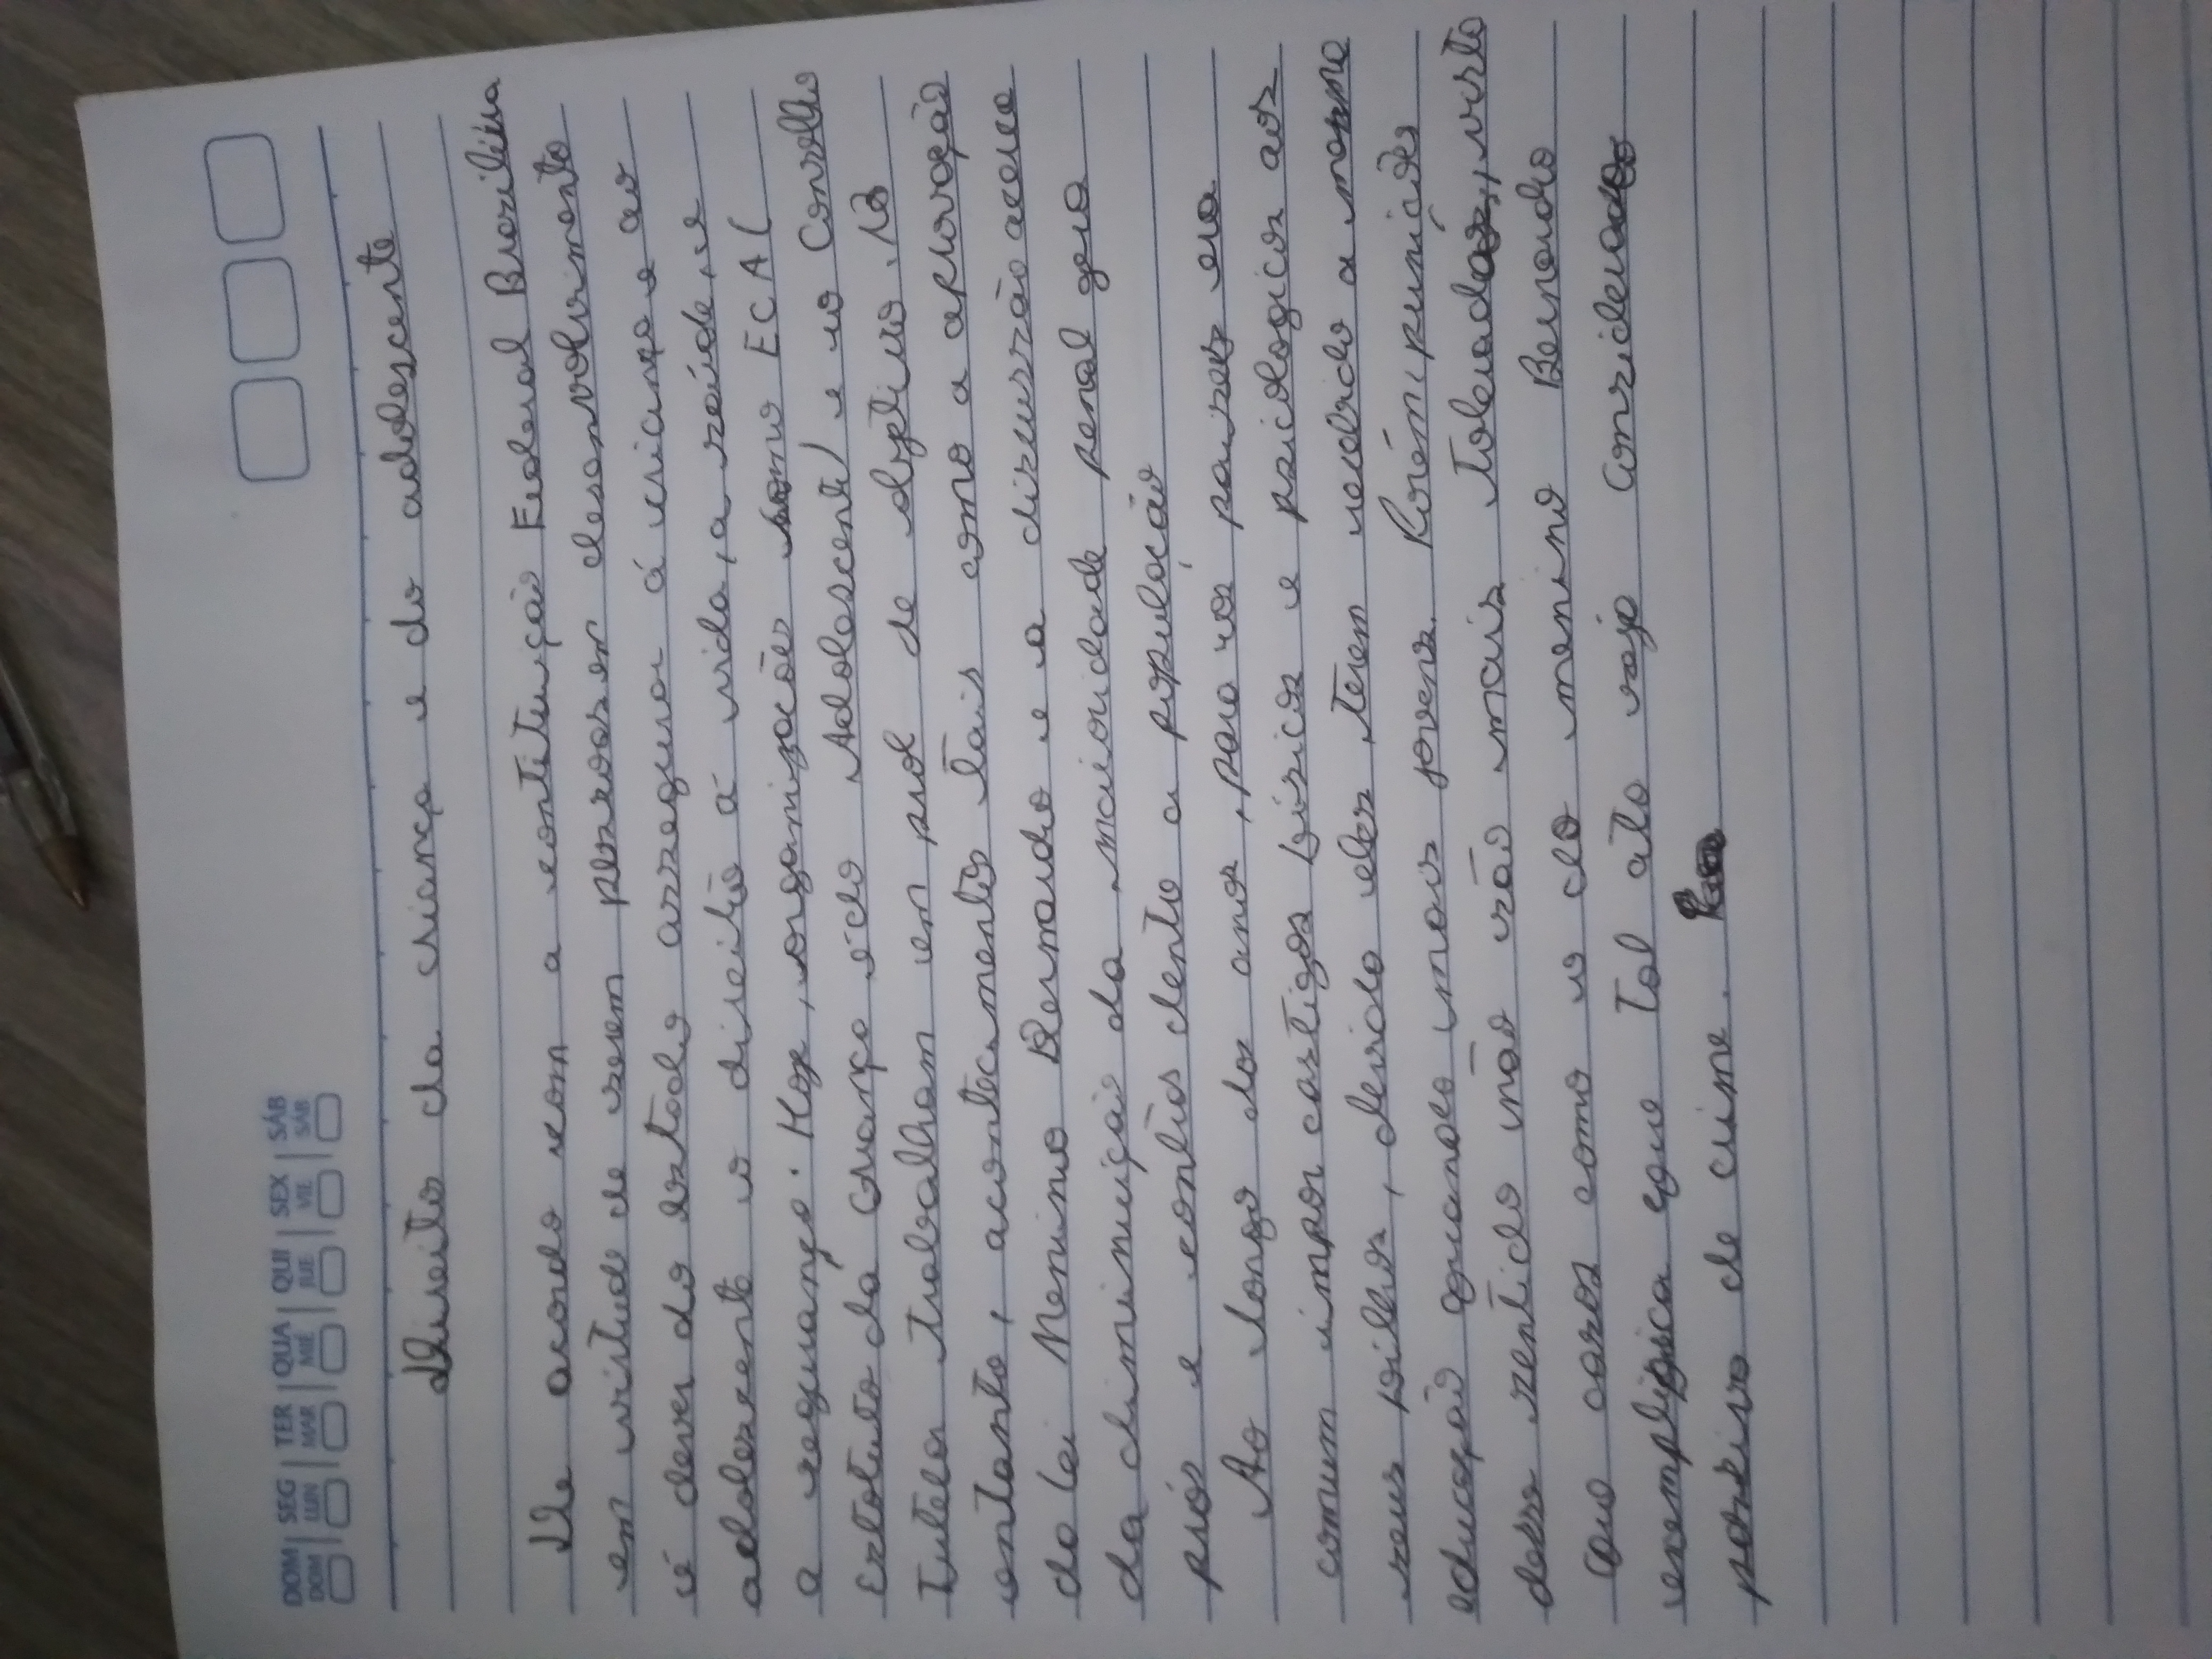 DOM SEG TER QUA QUI SEX SÁB
DOM LUN MAR MIÉ JUE VIE SÁB
Direito da criança e do adolescente
De acordo com a contituição Federal Brasileira
em virtude de serem pessoas em desenvolvimento
é dever do estado assegurar á criança e ao
adolescente o direito á vida, a saúde, e
a segurança. Hoje, organizações como ECA (
Estatuto da Criança e do Adolescente) e o Conselho
Tutelar trabalham em prol de objetivo. No
entanto, acontecimentos tais como a aprovação
da lei Menino Bernardo e a discussão acerca
da diminuição da maioridade penal gera
prós e contras dentro a população
Ao longo dos anos, para os pais era
comum impor castigos físicos e psicologicos aos
seus filhos, devido eles terem recebido a mesma
educação quando mais jovens. Porém, punições
desse sentido não são mais toleradas, visto
que casos como o do menino Bernardo
exemplifica que tal ato seja considerado
passivo de crime.